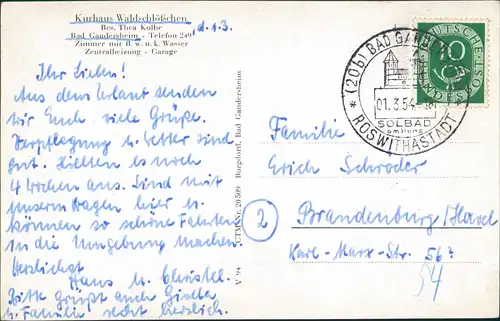 Kurhaus Waldschlößchen
Bes. Thea Kolbe
Bad Gandersheim - Telefon 240
Zimmer mit fl. w. u. k. Wasser
Zentralheizung - Garage
d. 1. 3.
Ihr Lieben!
Aus dem Urlaub senden
wir Euch viele Grüße.
Verpflegung u. Wetter sind
gut. Hielten es noch
4 Wochen aus. Sind mit
unserm Wagen hier u.
können so schöne Fahrten
in die Umgebung machen
Herzlichst
Hans u. Christel.
Bitte grüßt auch Gisela
u. Familie recht herzlich.
V 94 CTM Nr. 20509 Burgdorff, Bad Gandersheim
(20b) BAD GANDERS
01.3.54.-18
SOLBAD
am Harz
ROSWITHASTADT
DEUTSCHE
BUNDESPOST
10
Familie
Erich Schröder
2
Brandenburg/Havel
Karl-Marx-Str. 56
54